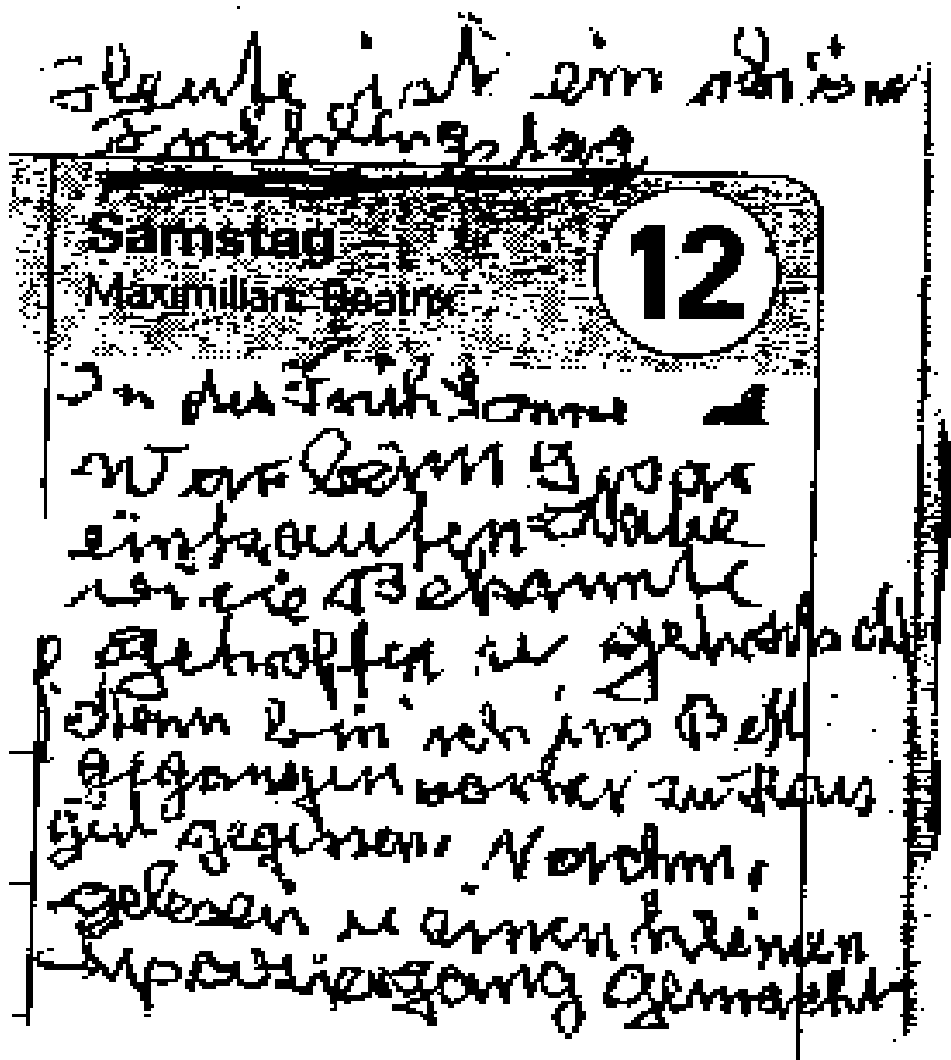 Heute ist ein schön
Frühlingstag
Samstag
12
Maximilian, Beatrix
In der Früh Sonne
War beim Spar
einkaufen Habe
wie Bekannte
getroffen u getratscht
dann bin ich ins Bett
gegangen vorher zu Haus
gut gegessen. Nachm.
gelesen u einen kleinen
Spaziergang gemacht